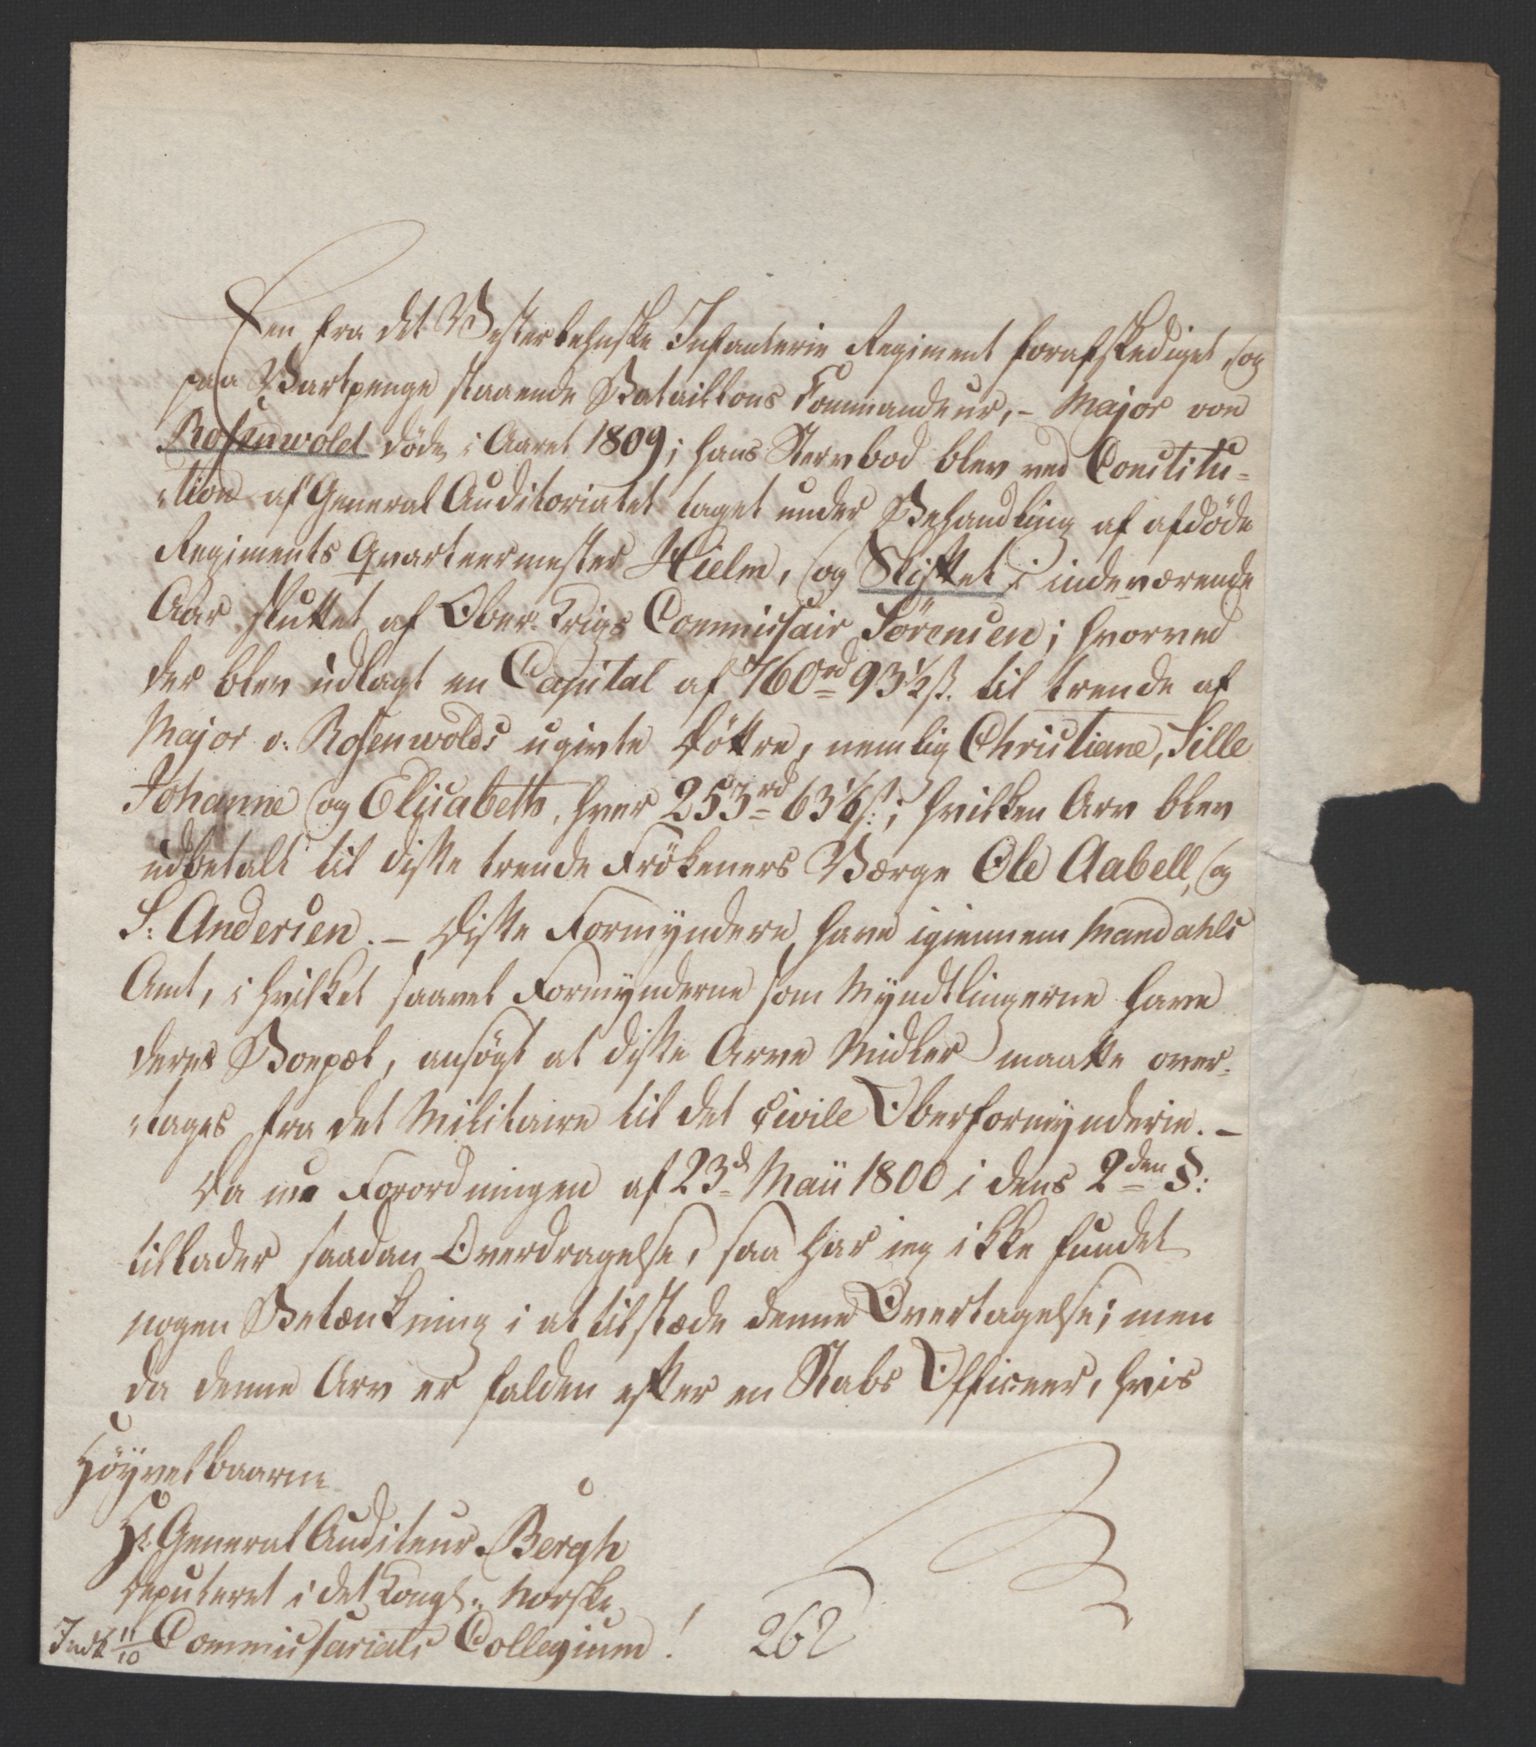 Een fra det Vesterlehnske Infanterie Regiment forafskediget, og
paa Vartpenge staaende Bataillons Commandeur, – Major von
Rosenwold døde i Aaret 1809; hans Stervbod blev ved Constitu-
-tion af General Auditoriatet taget under Behandling af afdøde
Regiments Qvarteermester Hielm, og Skiftet i indeværende
Aar sluttet af Ober-Krigs Commissair Sörensen; hvorved
der blev udlagt en Capital af 760 rd 93½ s. til trende af
Major v: Rosenwolds ugivte Döttre, nemlig Christiane, Sille
Johanne og Elisabeth, hver 253 rd 63⅙ s:; hvilken Arv blev
udbetalt til disse trende Frökeners Værge Ole Aabell, og
S: Andersen. – Disse Formyndere have igiennem Mandahls
Amt, i hvilket saavel Formynderne som Myndtlingerne have
deres Boepæl, ansögt at disse Arve Midler maatte over-
-tages fra det Militaire til det civile Oberformynderie. –
Da nu Forordningen af 23d Maii 1800 i dens 2den §:
tillader saadan Overdragelse, saa har ieg ikke fundet
nogen Betænkning i at tilstæde denne Overtagelse; men
da denne Arv er falden efter en Stabs Officeer, hvis
Höyvelbaarne
Hr. General Auditeur Bergh
Deputeret i det Kongl: Norske
Commissariats Collegium!
Indk 11/10
262